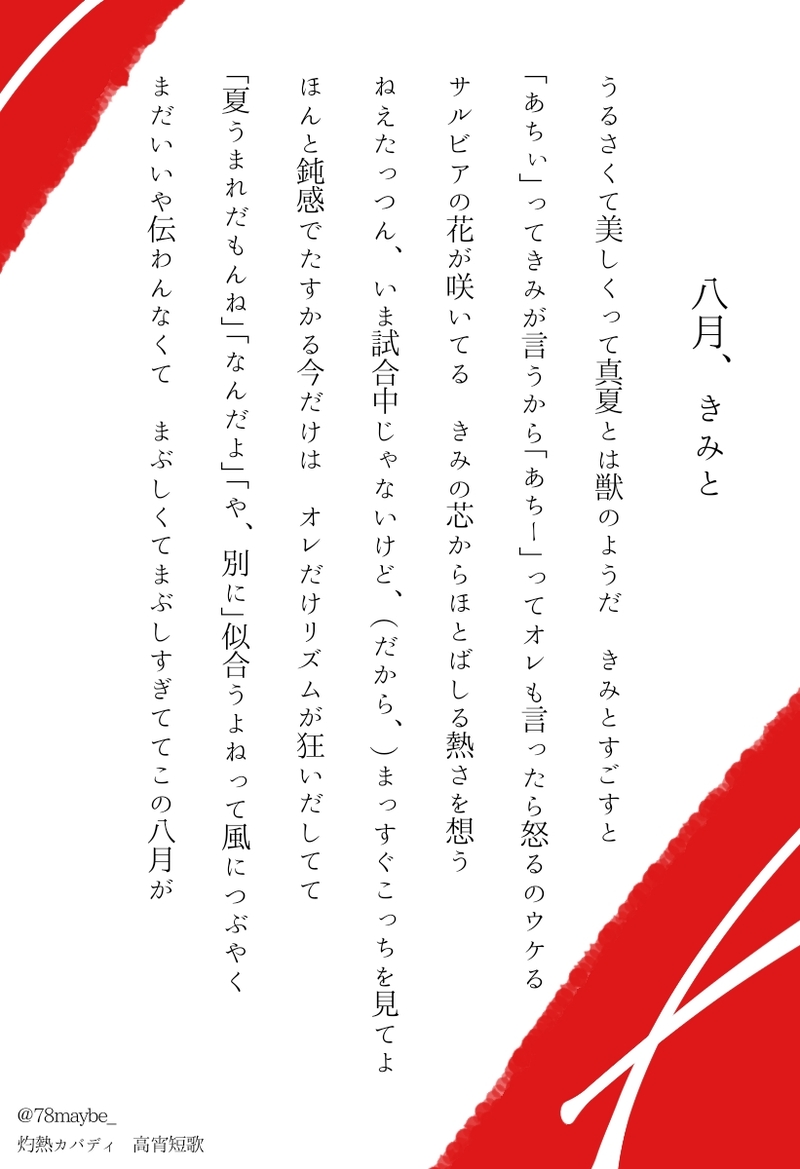 八月、きみと
うるさくて美しくって真夏とは獣のようだ　きみとすごすと
「あちぃ」ってきみが言うから「あちー」ってオレも言ったら怒るのウケる
サルビアの花が咲いてる　きみの芯からほとばしる熱さを想う
ねえたっつん、いま試合中じゃないけど、（だから、）まっすぐこっちを見てよ
ほんと鈍感でたすかる今だけは　オレだけリズムが狂いだしてて
「夏うまれだもんね」「なんだよ」「や、別に」似合うよねって風につぶやく
まだいいや伝わんなくて　まぶしくてまぶしすぎててこの八月が
@78maybe_
灼熱カバディ　高宵短歌